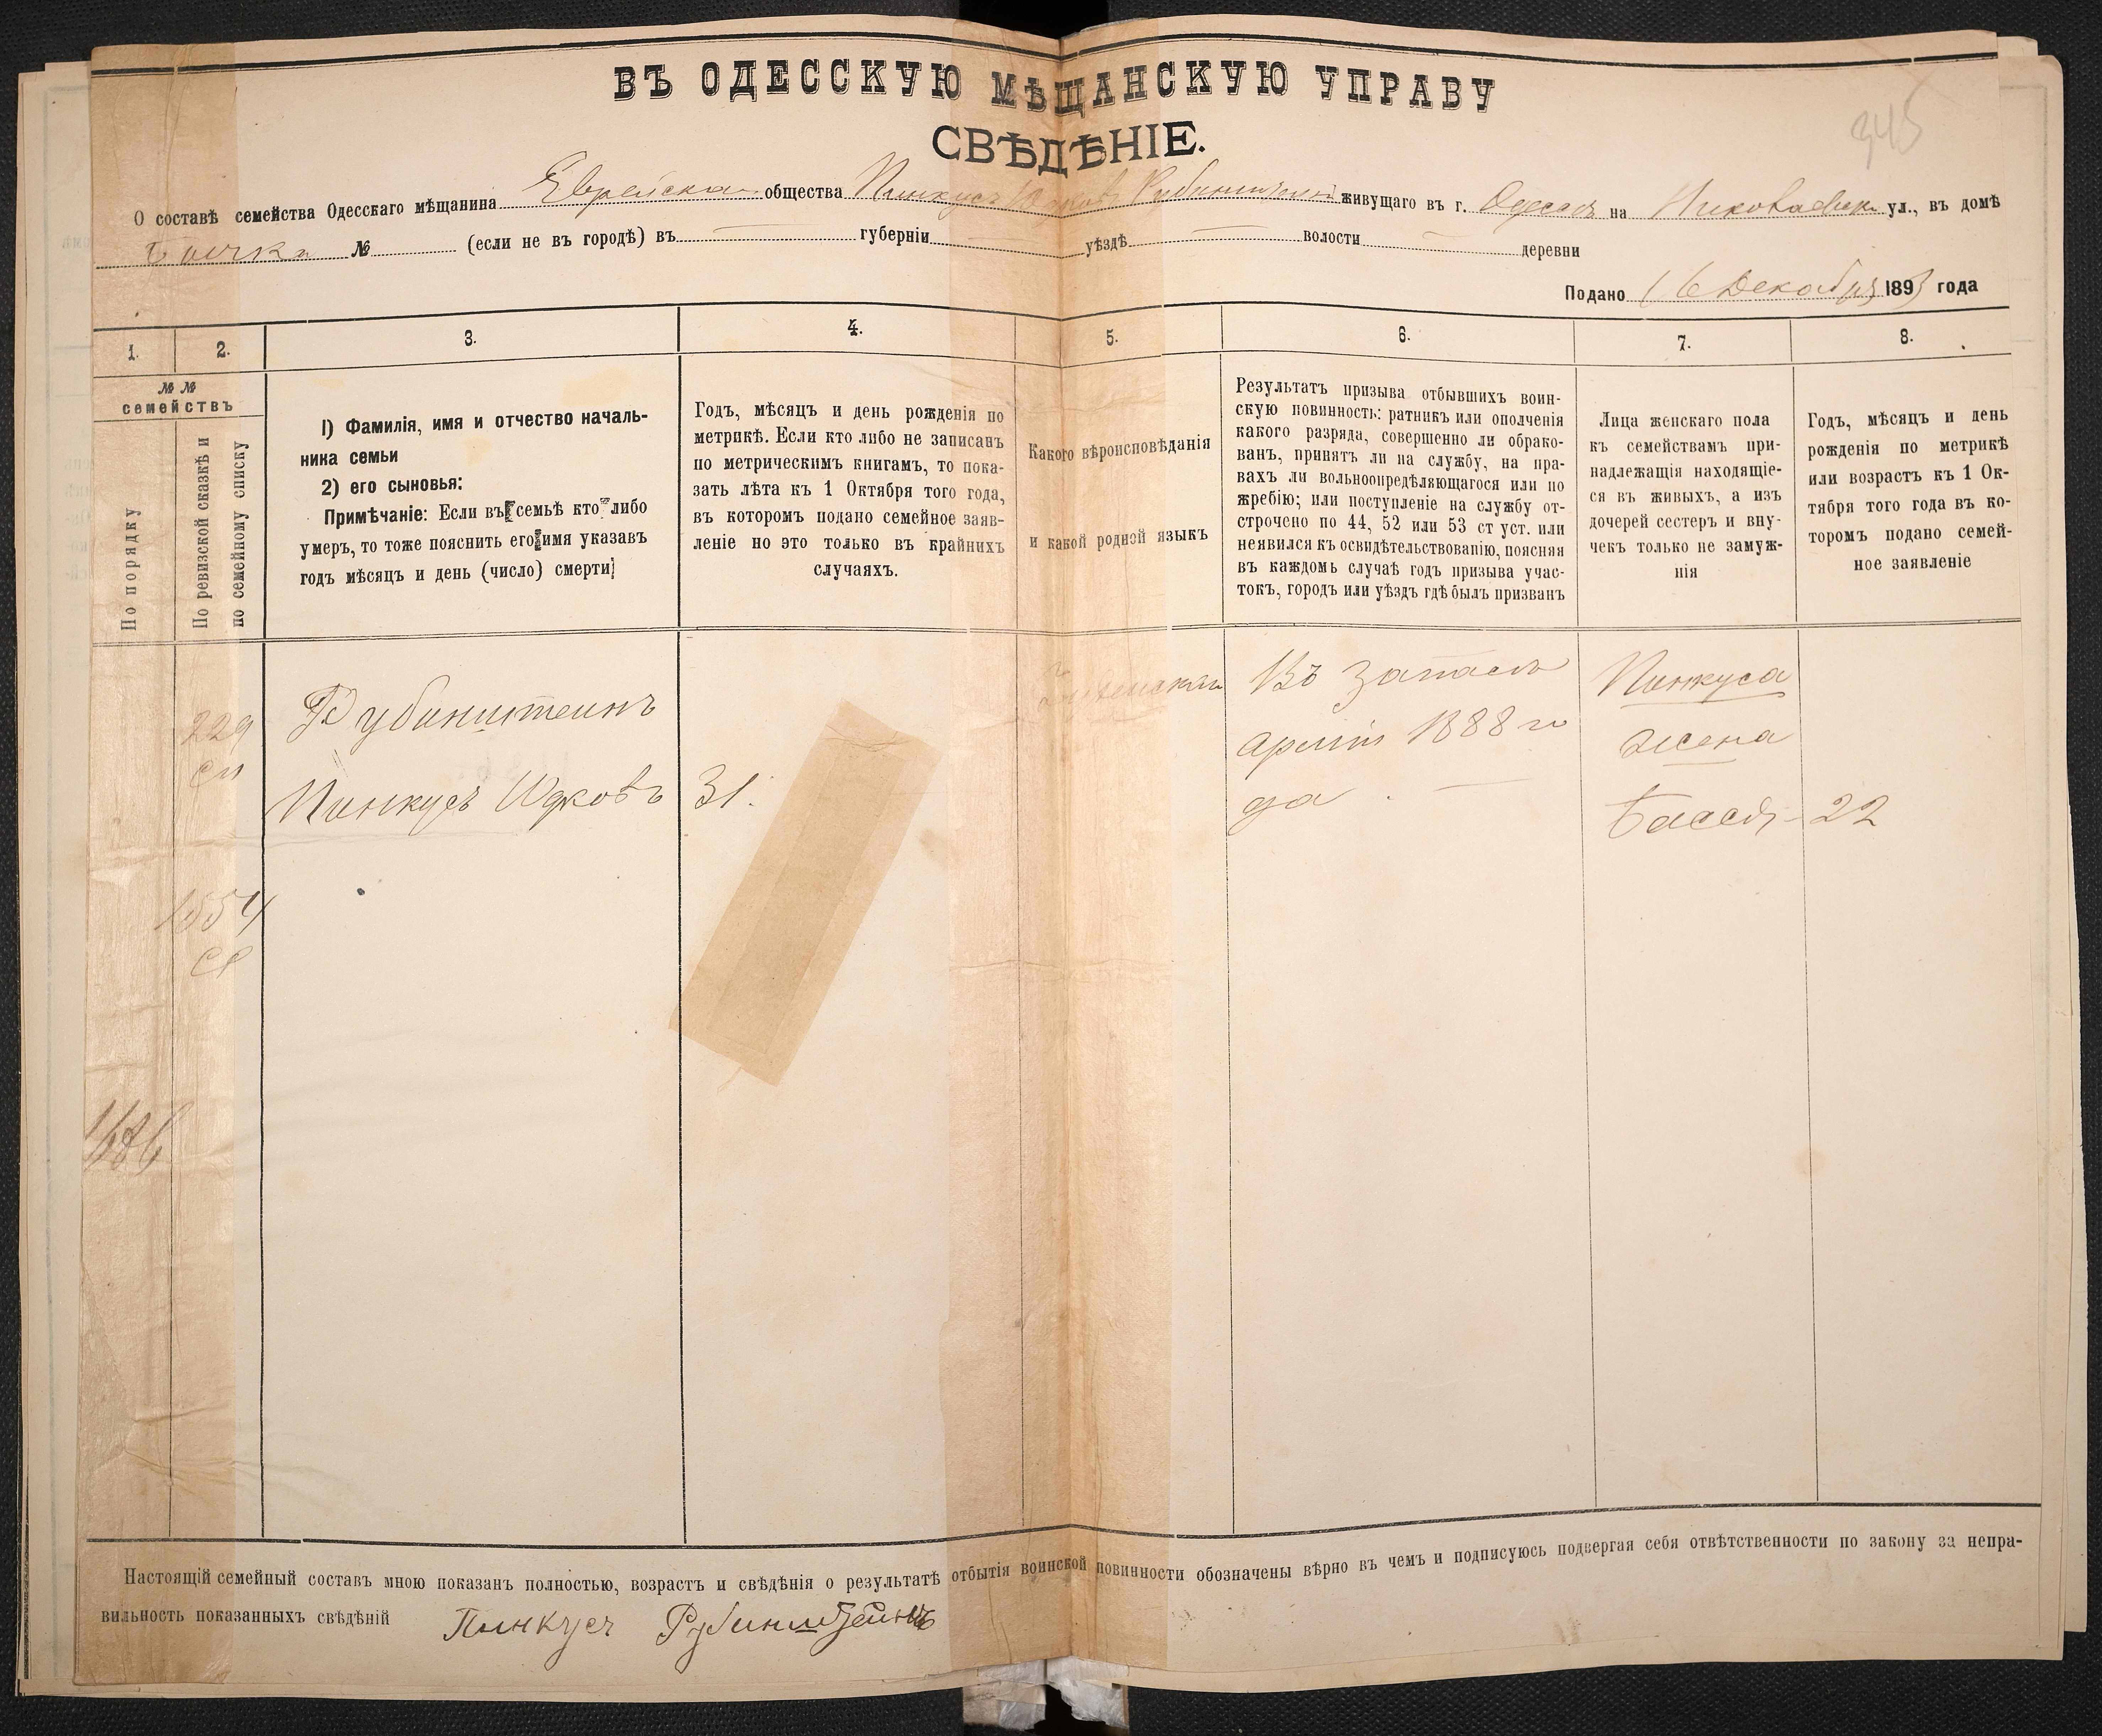 345
ВЪ ОДЕССКУЮ МѢЩАНСКУЮ УПРАВУ
СВѢДѢНІЕ.
О составѣ семейства Одесскаго мѣщанина Еврейска общества Пинкуса Юдкова Рубинштейнъ живущаго въ г. Одессѣ на ул., въ домѣ
№ (если не въ городѣ) въ губерніи уѣздѣ волости деревни
Подано 16 Декабря 1893 года
1. 2. 3. 4. 5. 6. 7. 8.
№ №
семействъ
По порядку
По ревизской сказкѣ и
по семейному списку
1) Фамилія, имя и отчество началь-
ника семьи
2) его сыновья:
Примѣчаніе: Если въ семьѣ кто либо
умеръ, то тоже пояснить его имя указавъ
годъ мѣсяцъ и день (число) смерти
Годъ, мѣсяцъ и день рожденія по
метрикѣ. Если кто либо не записанъ
по метрическимъ книгамъ, то пока-
зать лѣта къ 1 Октября того года,
въ которомъ подано семейное заяв-
леніе но это только въ крайнихъ
случаяхъ.
Какого вѣроисповѣданія
и какой родной языкъ
Результатъ призыва отбывшихъ воин-
скую повинность: ратникъ или ополченія
какого разряда, совершенно ли обрако-
ванъ, принятъ ли на службу, на пра-
вахъ ли вольноопредѣляющагося или по
жребію; или поступленіе на службу от-
строчено по 44, 52 или 53 ст уст. или
неявился къ освидѣтельствованію, поясняя
въ каждомъ случаѣ годъ призыва учас-
токъ, городъ или уѣздъ гдѣ былъ призванъ
Лица женскаго пола
къ семействамъ при-
надлежащія находящіе-
ся въ живыхъ, а изъ
дочерей сестеръ и вну-
чекъ только не замуж-
нія
Годъ, мѣсяцъ и день
рожденія по метрикѣ
или возрастъ къ 1 Ок-
тября того года въ ко-
торомъ подано семей-
ное заявленіе
229
сп
Рубинштеинъ
Пинкусъ Юдковъ
31.
Въ запасѣ
арміи 1888 го
да.
Пинкуса
жена
Бася - 22
1554
1686
Настоящій семейный составъ мною показанъ полностью, возрастъ и свѣдѣнія о результатѣ отбытія воинской повинности обозначены вѣрно въ чемъ и подписуюсь подвергая себя отвѣтственности по закону за непра-
вильность показанныхъ свѣдѣній Пинкусъ Рубинштейнъ